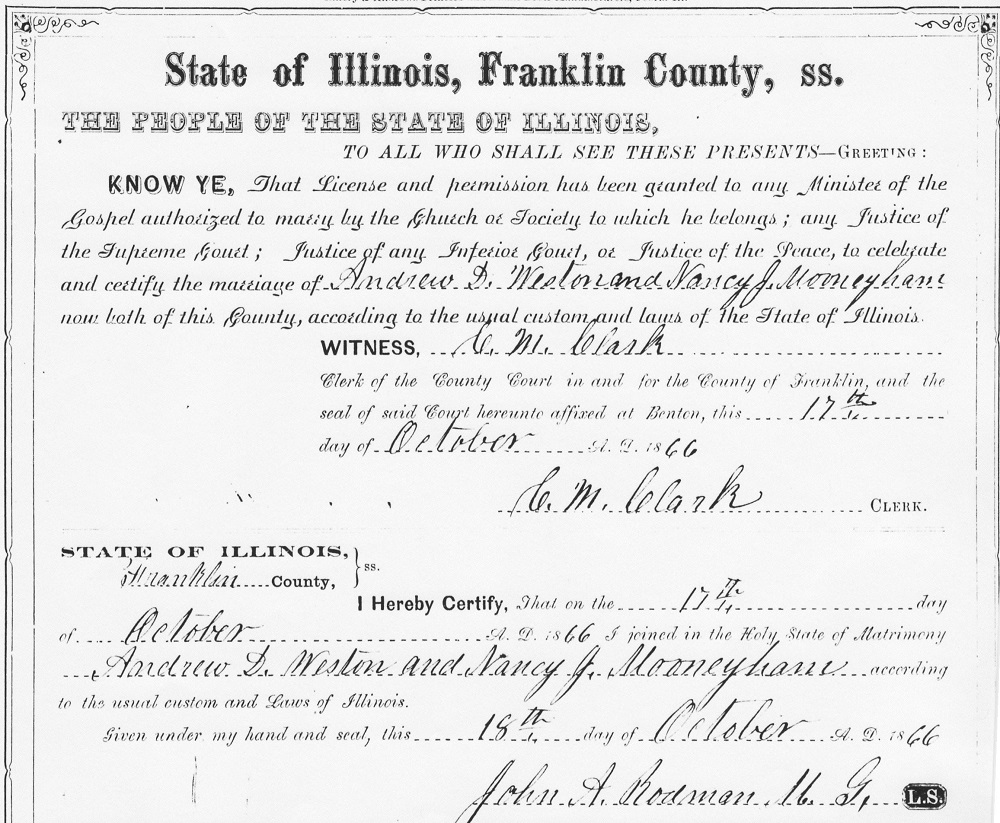 State of Illinois, Franklin County, ss.
THE PEOPLE OF THE STATE OF ILLINOIS,
TO ALL WHO SHALL SEE THESE PRESENTS—GREETING:
KNOW YE, That License and permission has been granted to any Minister of the
Gospel authorized to marry by the Church or Society to which he belongs; any Justice of
the Supreme Court; Justice of any Inferior Court, or Justice of the Peace, to celebrate
and certify the marriage of Andrew D. Weston and Nancy J. Mooneyham
now both of this County, according to the usual custom and laws of the State of Illinois.
WITNESS, C. M. Clark
Clerk of the County Court in and for the County of Franklin, and the
seal of said Court hereunto affixed at Benton, this 17th
day of October A. D. 1866
C. M. Clark CLERK.
STATE OF ILLINOIS,
Franklin County, } ss.
I Hereby Certify, That on the 17th day
of October A. D. 1866 I joined in the Holy State of Matrimony
Andrew D. Weston and Nancy J. Mooneyham according
to the usual custom and Laws of Illinois.
Given under my hand and seal, this 18th day of October A. D. 1866
John A. Rodman M. G. L.S.